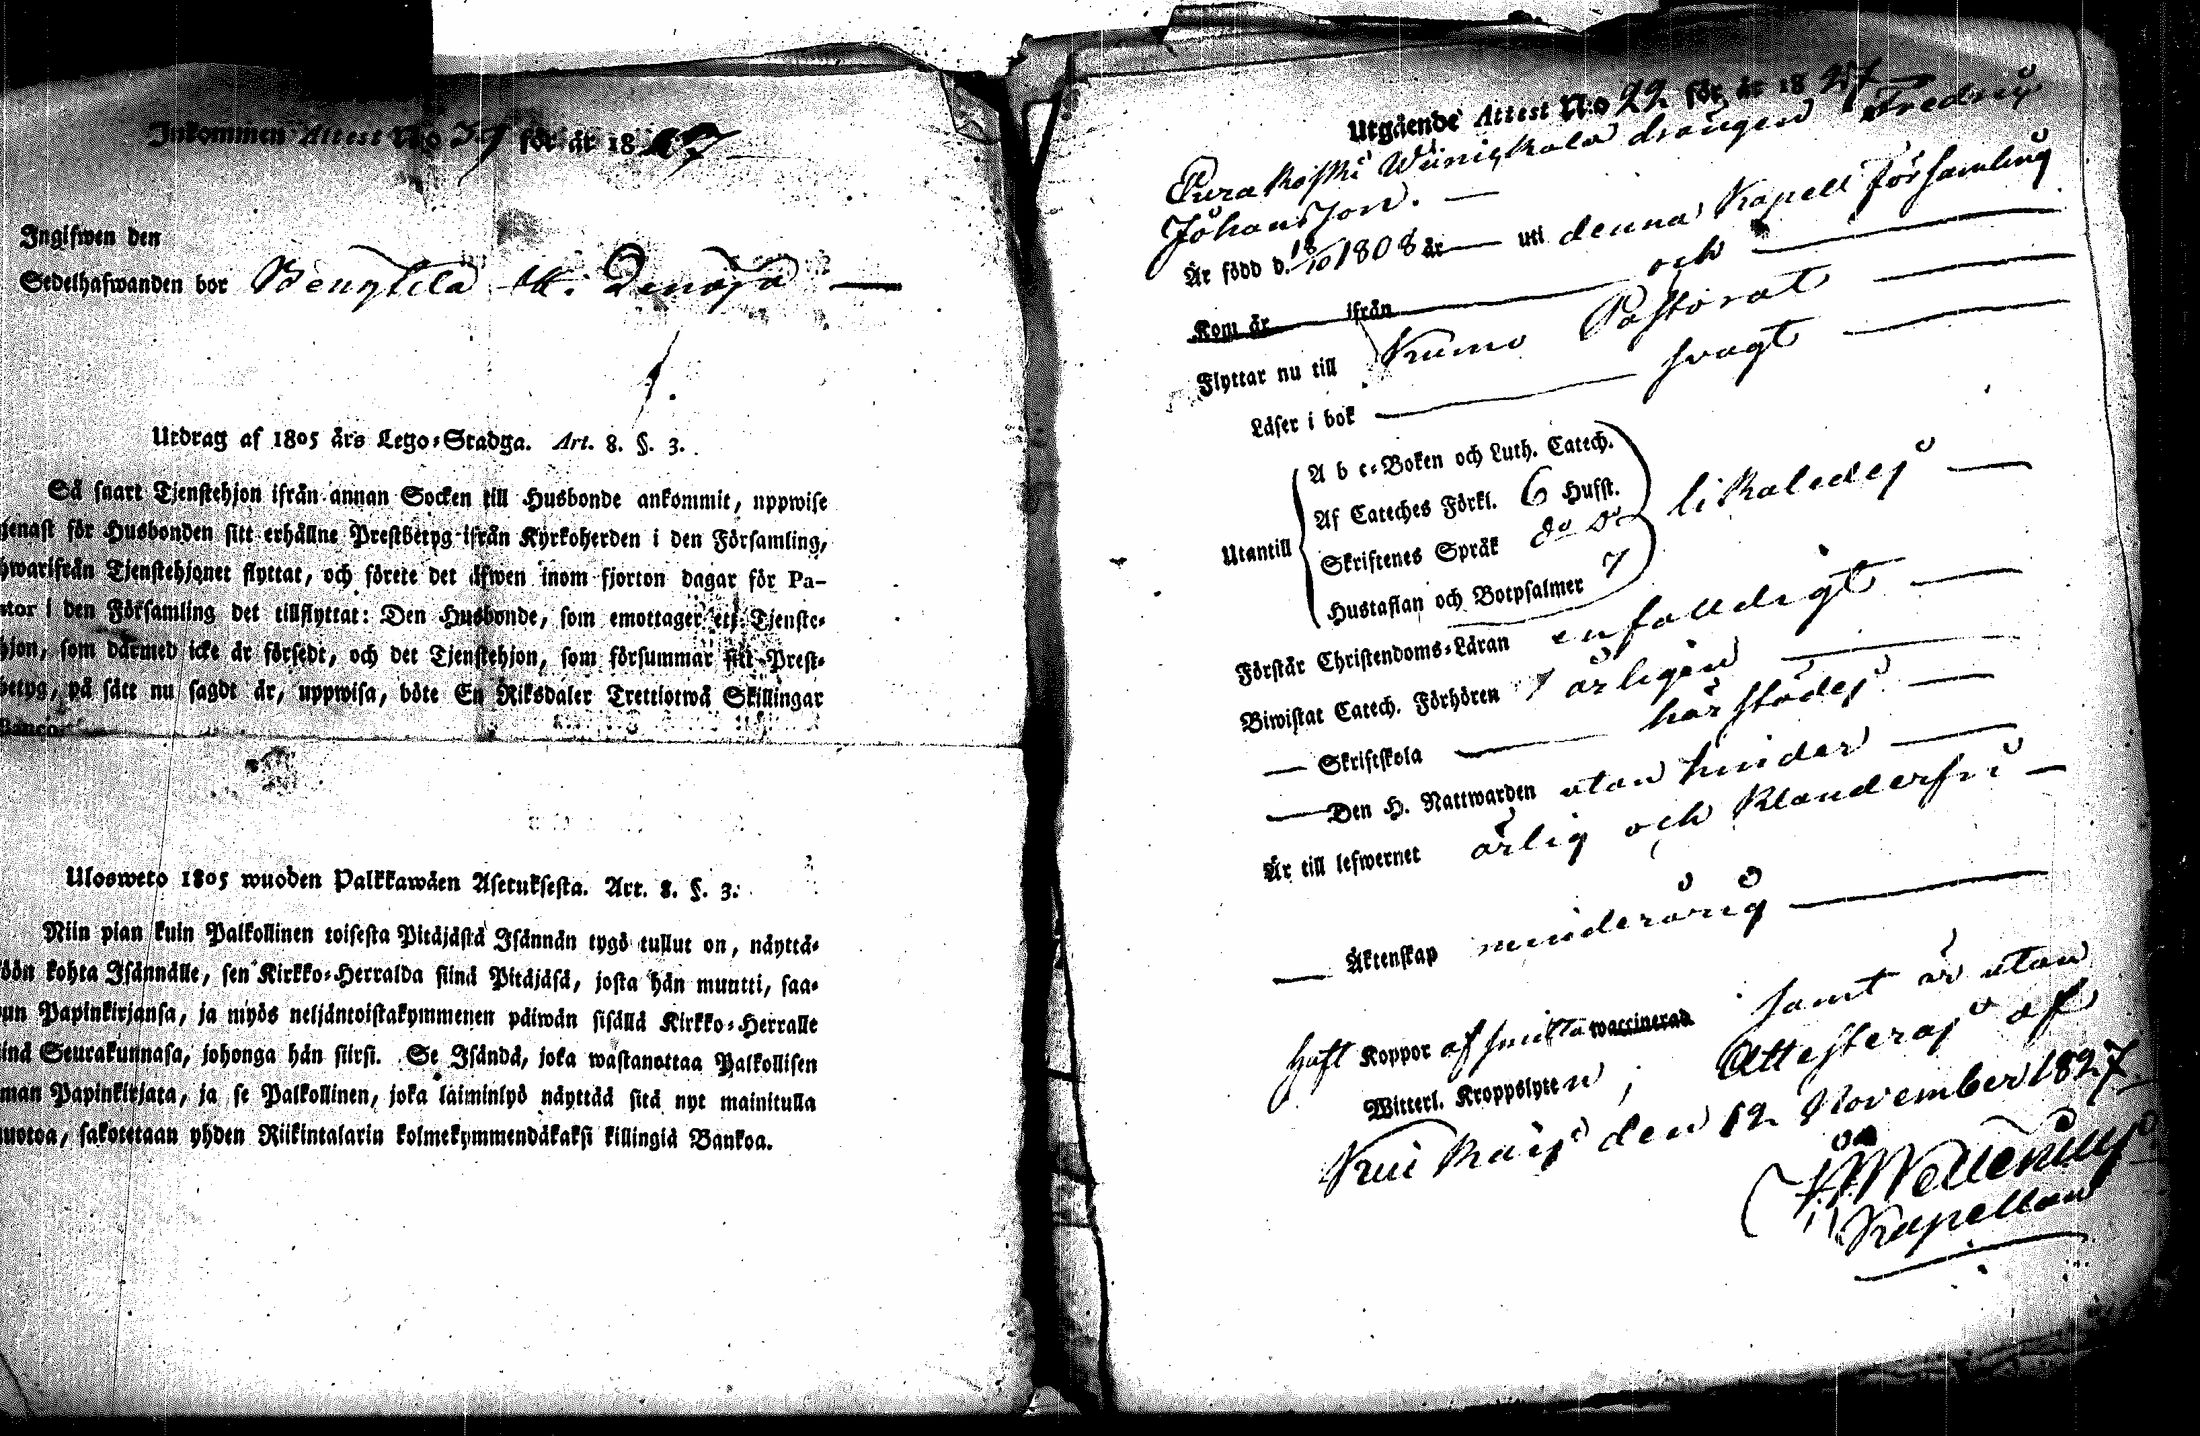 Inkommen Attest No 37 för år 1827
Ingifwen den
Sedelhafwanden bor Bengtila
Utdrag af 1805 års Lego-Stadga. Art. 8. §. 3.
Så snart Tjenstehjon ifrån annan Socken till Husbonde ankommit, uppwise
genast för Husbonden sitt erhållne Prestbetyg ifrån Kyrkoherden i den Församling,
hwarifrån Tjenstehjonet flyttat, och förete det äfwen inom fjorton dagar för Pa-
stor i den Församling det tillflyttat: Den Husbonde, som emottager ett Tjenste-
hjon, som därmed icke är försedt, och det Tjenstehjon, som försummar sitt Prest-
betyg, på sätt nu sagdt är, uppwisa, böte En Riksdaler Trettiotwå Skillingar
Banco.
Ulosweto 1805 wuoden Palkkawäen Asetuksesta. Art. 8. §. 3.
Niin pian kuin Palkollinen toisesta Pitäjästä Isännän tygö tullut on, näyttä-
köön kohta Isännälle, sen Kirkko-Herralda siinä Pitäjäsä, josta hän muutti, saa-
dun Papinkirjansa, ja myös neljäntoistakymmenen päiwän sisällä Kirkko-Herralle
siinä Seurakunnasa, johonga hän siirsi. Se Isändä, joka wastanottaa Palkollisen
ilman Papinkirjata, ja se Palkollinen, joka laiminlyö näyttää sitä nyt mainitulla
muotoa, sakotetaan yhden Riikintalarin kolmekymmendäkaksi killingiä Bankoa.
Utgående Attest No 22 för år 1827
Eurakoski Wänizkala drängen Fredric
Johansson.
Är född d. 18/10 1808 år uti denna Kapell församling
Kom år ifrån och
Flyttar nu till Kumo Pastorat
Läser i bok svagt
Utantill
A b c-Boken och Luth. Catech.
Af Cateches Förkl. 6 Hufst.
Skriftenes Språk do do
Hustaflan och Botpsalmer 7
likaledes
Förstår Christendoms-Läran enfalldigt
Biwistat Catech. Förhören årligen
Skriftskola härstädes
Den H. Nattwarden utan hinder
Är till lefwernet ärlig och klanderfri
Äktenskap minderårig
haft Koppor af smitta waccinerad samt är utan
Witterl. Kroppslyten; Attesteras af
Kiukais den 12 November 1827.
Kapellan